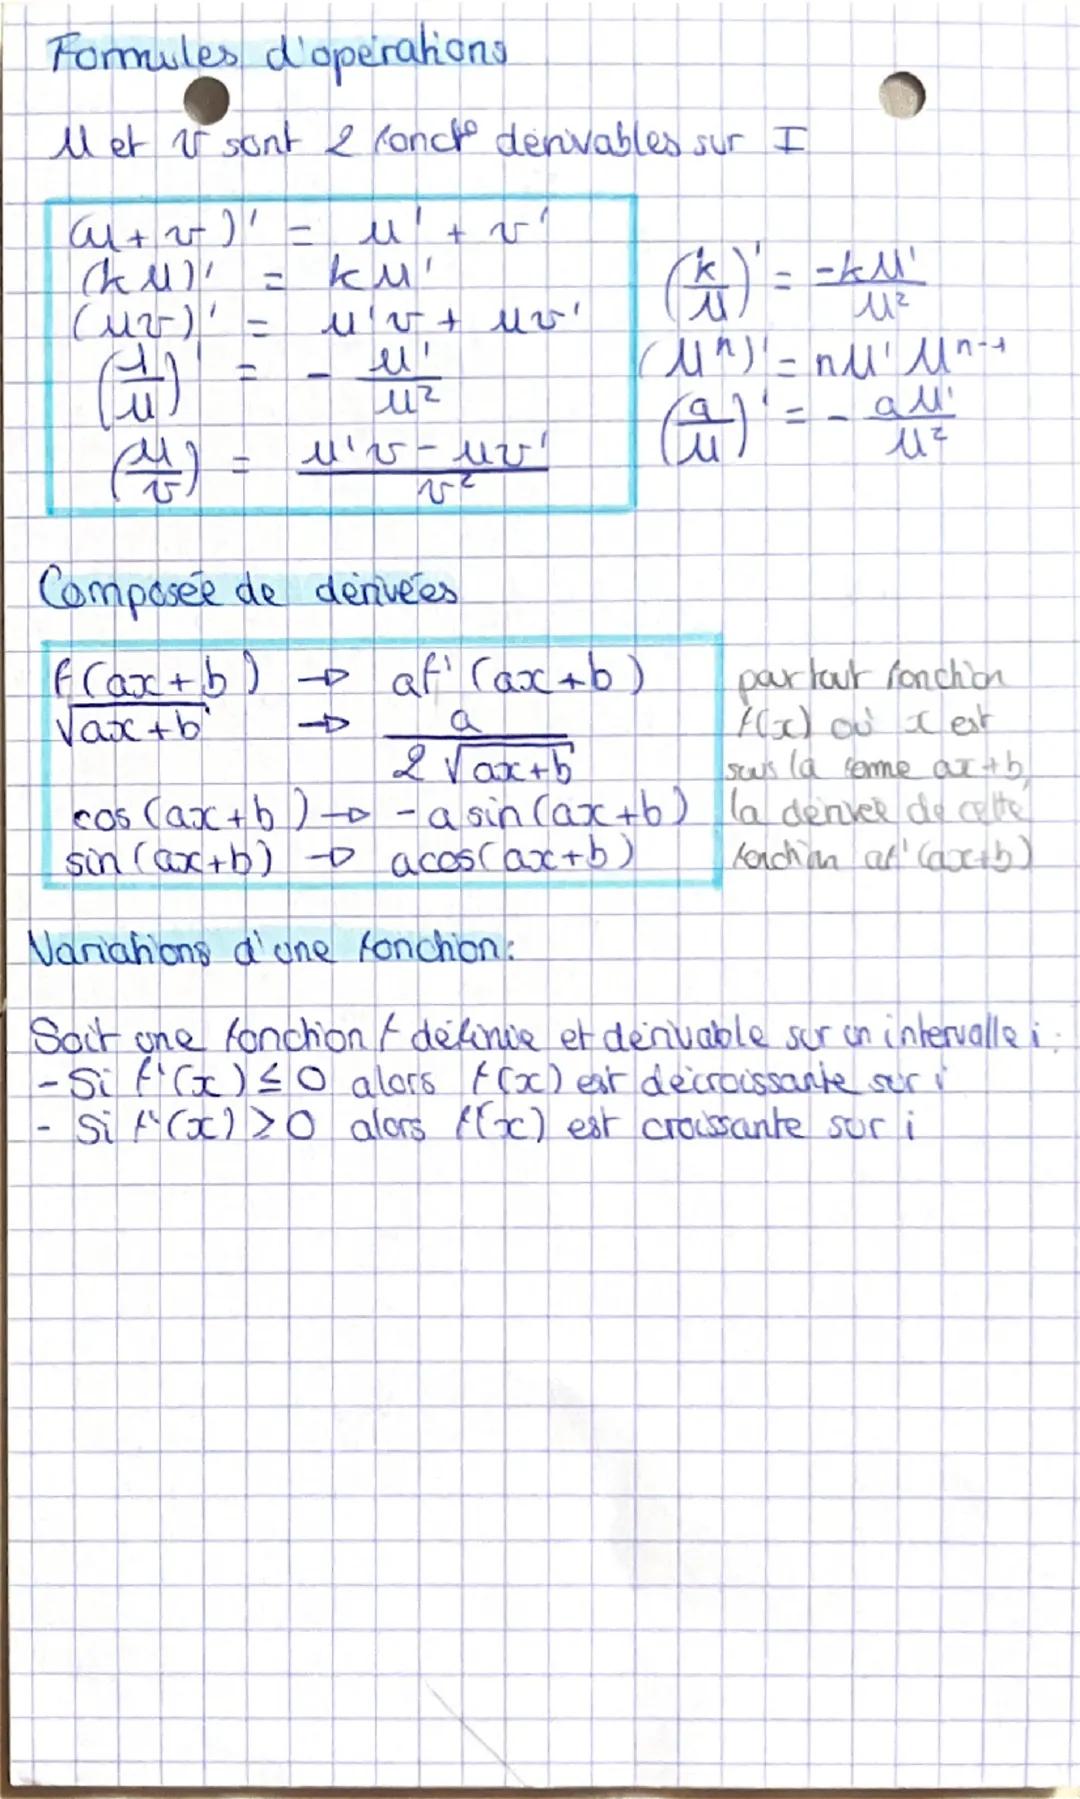 Formules d'opérations
U et v sont 2 fonct° dérivables sur I
(u + v)' = u' + v'
(k u)' = k u'
(uv)' = u'v + uv'
(1/u)' = - u'/u²
(u/v) = u'v - uv'/v²
(k/u)' = -ku'/u²
(uⁿ)' = nu' uⁿ⁻¹
(a/u)' = - au'/u²
Composée de dérivées
f(ax+b) → af'(ax+b)
√ax+b → a/2√ax+b
cos(ax+b) → -a sin(ax+b)
sin(ax+b) → acos(ax+b)
par tout fonction
f(x) où x est
sous la forme ax+b,
la dérivée de cette
fonction af'(ax+b)
Variations d'une fonction:
Soit une fonction f définie et dérivable sur un intervalle i:
- Si f'(x) ≤ 0 alors f(x) est décroissante sur i
- Si f'(x) ≥ 0 alors f(x) est croissante sur i